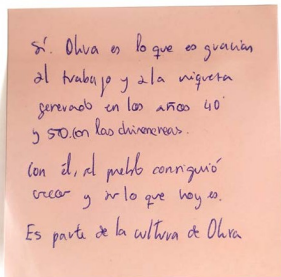 Sí. Oliva es lo que es gracias
al trabajo y a la riqueza
generado en los años 40
y 50 con las chimeneas.
Con él, el pueblo consiguió
crecer y ser lo que hoy es.
Es parte de la cultura de Oliva